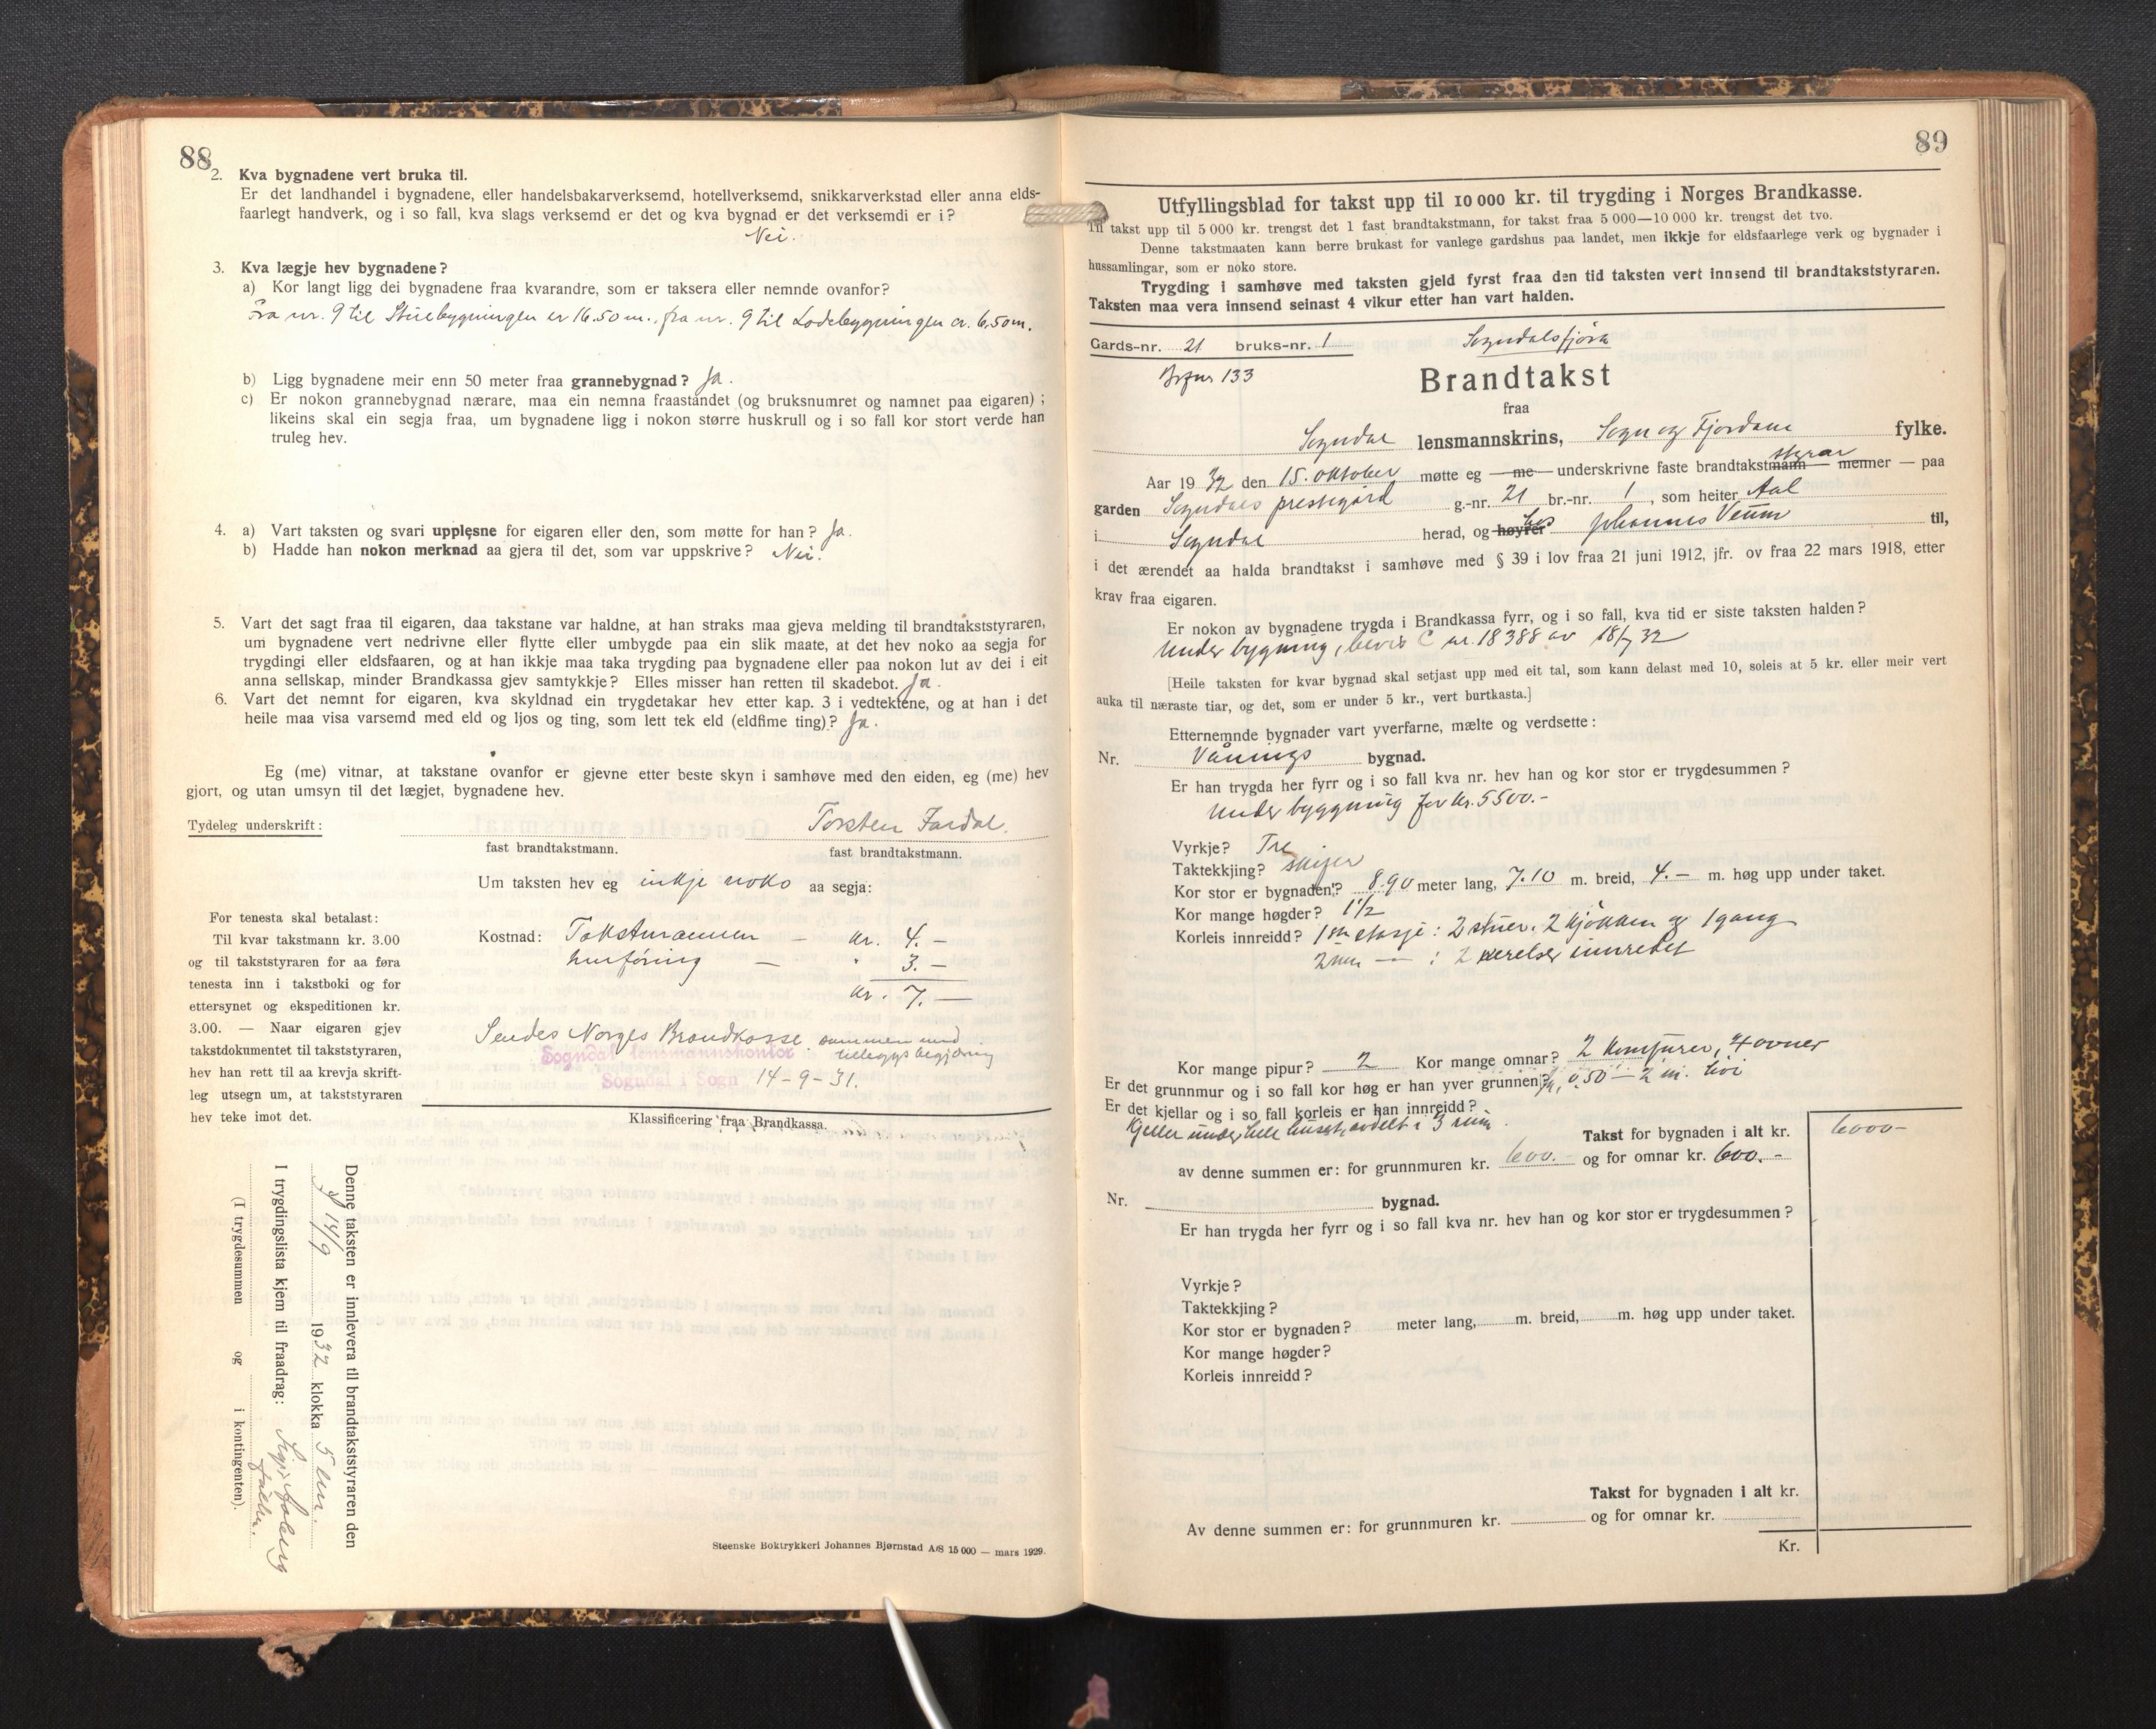 88
2. Kva bygnadene vert bruka til.
Er det landhandel i bygnadene, eller handelsbakarverksemd, hotellverksemd, snikkarverkstad eller anna elds-
faarlegt handverk, og i so fall, kva slags verksemd er det og kva bygnad er det verksemdi er i?
Nei.
3. Kva lægje hev bygnadene?
a) Kor langt ligg dei bygnadene fraa kvarandre, som er taksera eller nemnde ovanfor?
Fra nr. 9 til Stuebygningen er 16.50 m., fra nr. 9 til Lodebygningen er 6.50 m.
b) Ligg bygnadene meir enn 50 meter fraa grannebygnad? Ja.
c) Er nokon grannebygnad nærare, maa ein nemna fraastandet (og bruksnumret og namnet paa eigaren);
likeins skal ein segja fraa, um bygnadene ligg i nokon større huskrull og i so fall kor stort verde han
truleg hev.
4. a) Vart taksten og svari upplesne for eigaren eller den, som møtte for han? Ja.
b) Hadde han nokon merknad aa gjera til det, som var uppskrive? Nei.
5. Vart det sagt fraa til eigaren, daa takstane var haldne, at han straks maa gjeva melding til brandtakststyraren,
um bygnadene vert nedrivne eller flytte eller umbygde paa ein slik maate, at det hev noko aa segja for
trygdingi eller eldsfaaren, og at han ikkje maa taka trygding paa bygnadene eller paa nokon lut av dei i eit
anna sellskap, minder Brandkassa gjev samtykkje? Elles misser han retten til skadebot. Ja.
6. Vart det nemnt for eigaren, kva skyldnad ein trygdetakar hev etter kap. 3 i vedtektene, og at han i det
heile maa visa varsemd med eld og ljos og ting, som lett tek eld (eldfime ting)? Ja.
Eg (me) vitnar, at takstane ovanfor er gjevne etter beste skyn i samhøve med den eiden, eg (me) hev
gjort, og utan umsyn til det lægjet, bygnadene hev.
Tydeleg underskrift: Torsten Fardal.
fast brandtakstmann. fast brandtakstmann.
Um taksten hev eg inkje noko aa segja:
For tenesta skal betalast:
Til kvar takstmann kr. 3.00
og til takststyraren for aa føra
tenesta inn i takstboki og for
ettersynet og ekspeditionen kr.
3.00. — Naar eigaren gjev
takstdokumentet til takststyraren,
hev han rett til aa krevja skrift-
leg utsegn um, at takststyraren
hev teke imot det.
Kostnad: Takstmannen — kr. 4.—
Innføring — " 3.—
kr. 7.—
Sendes Norges Brandkasse sammen med
tilleggsbegjæring
Sogndal lensmannskontor
Sogndal i Sogn 14-9-31.
Klassificering fraa Brandkassa.
Denne taksten er innlevera til brandtakststyraren den
14/9 1932 klokka 5 em.
I trygdingslista kjem til fraadrag:
(I trygdesummen og i kontingenten).
Steenske Boktrykkeri Johannes Bjørnstad A/S 15 000 — mars 1929.
89
Utfyllingsblad for takst upp til 10 000 kr. til trygding i Norges Brandkasse.
Til takst upp til 5 000 kr. trengst det 1 fast brandtakstmann, for takst fraa 5 000—10 000 kr. trengst det tvo.
Denne takstmaaten kann berre brukast for vanlege gardshus paa landet, men ikkje for eldsfaarlege verk og bygnader i
hussamlingar, som er noko store.
Trygding i samhøve med taksten gjeld fyrst fraa den tid taksten vert innsend til brandtakststyraren.
Taksten maa vera innsend seinast 4 vikur etter han vart halden.
Gards-nr. 21 bruks-nr. 1 Sogndalsfjøra
Brfnr 133
Brandtakst
fraa
Sogndal lensmannskrins, Sogn og Fjordane fylke.
Aar 1932 den 15. oktober møtte eg — me — underskrivne faste brandtakstmann styrar — menner — paa
garden Sogndals prestegård g.-nr. 21 br.-nr. 1, som heiter Aal
i Sogndal herad, og høyrer hos Johannes Veum til,
i det ærendet aa halda brandtakst i samhøve med § 39 i lov fraa 21 juni 1912, jfr. ov fraa 22 mars 1918, etter
krav fraa eigaren.
Er nokon av bygnadene trygda i Brandkassa fyrr, og i so fall, kva tid er siste taksten halden?
Under bygning, bevis C nr. 18388 av 18/7 32
[Heile taksten for kvar bygnad skal setjast upp med eit tal, som kann delast med 10, soleis at 5 kr. eller meir vert
auka til næraste tiar, og det, som er under 5 kr., vert burtkasta.]
Etternemnde bygnader vart yverfarne, mælte og verdsette:
Nr. Vånings bygnad.
Er han trygda her fyrr og i so fall kva nr. hev han og kor stor er trygdesummen?
Under byggning for kr. 5500.-
Vyrkje? Tre
Taktekkjing? skifer
Kor stor er bygnaden? 8.90 meter lang, 7.10 m. breid, 4.— m. høg upp under taket.
Kor mange høgder? 1 1/2
Korleis innreidd? 1ste etasje: 2 stuer, 2 kjøkken og 1 gang
2nen — : 2 værelser innredet
Kor mange pipur? 2 Kor mange omnar? 2 komfurer, 4 ovner
Er det grunnmur og i so fall kor høg er han yver grunnen? Ja, 0,50 — 2 m. høi
Er det kjellar og i so fall korleis er han innreidd?
Kjeller under hele huset, avdelt i 3 rum.
Takst for bygnaden i alt kr. 6000-
av denne summen er: for grunnmuren kr. 600.- og for omnar kr. 600.-
Nr. bygnad.
Er han trygda her fyrr og i so fall kva nr. hev han og kor stor er trygdesummen?
Vyrkje?
Taktekkjing?
Kor stor er bygnaden? meter lang, m. breid, m. høg upp under taket.
Kor mange høgder?
Korleis innreidd?
Takst for bygnaden i alt kr.
Av denne summen er: for grunnmuren kr. og for omnar kr.
Kr.